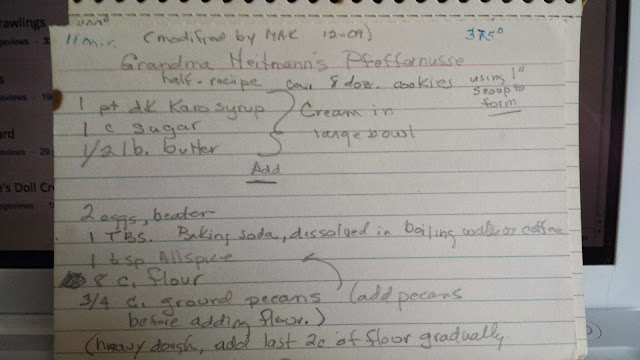 11 min (modified by MAK 12-09) 375°
Grandma Heitmann's Pfeffernusse
half-recipe 8 doz. cookies using 1"
scoop to
form
1 pt dk Karo syrup
1 c sugar
1/2 lb. butter
Cream in
large bowl
Add
2 eggs, beaten
1 TBS. Baking soda, dissolved in boiling water or coffee
1 tsp Allspice
8 c. flour
3/4 c. ground pecans (add pecans
before adding flour.)
(heavy dough, add last 2c of flour gradually)
rawlings
ard
's Doll Cr